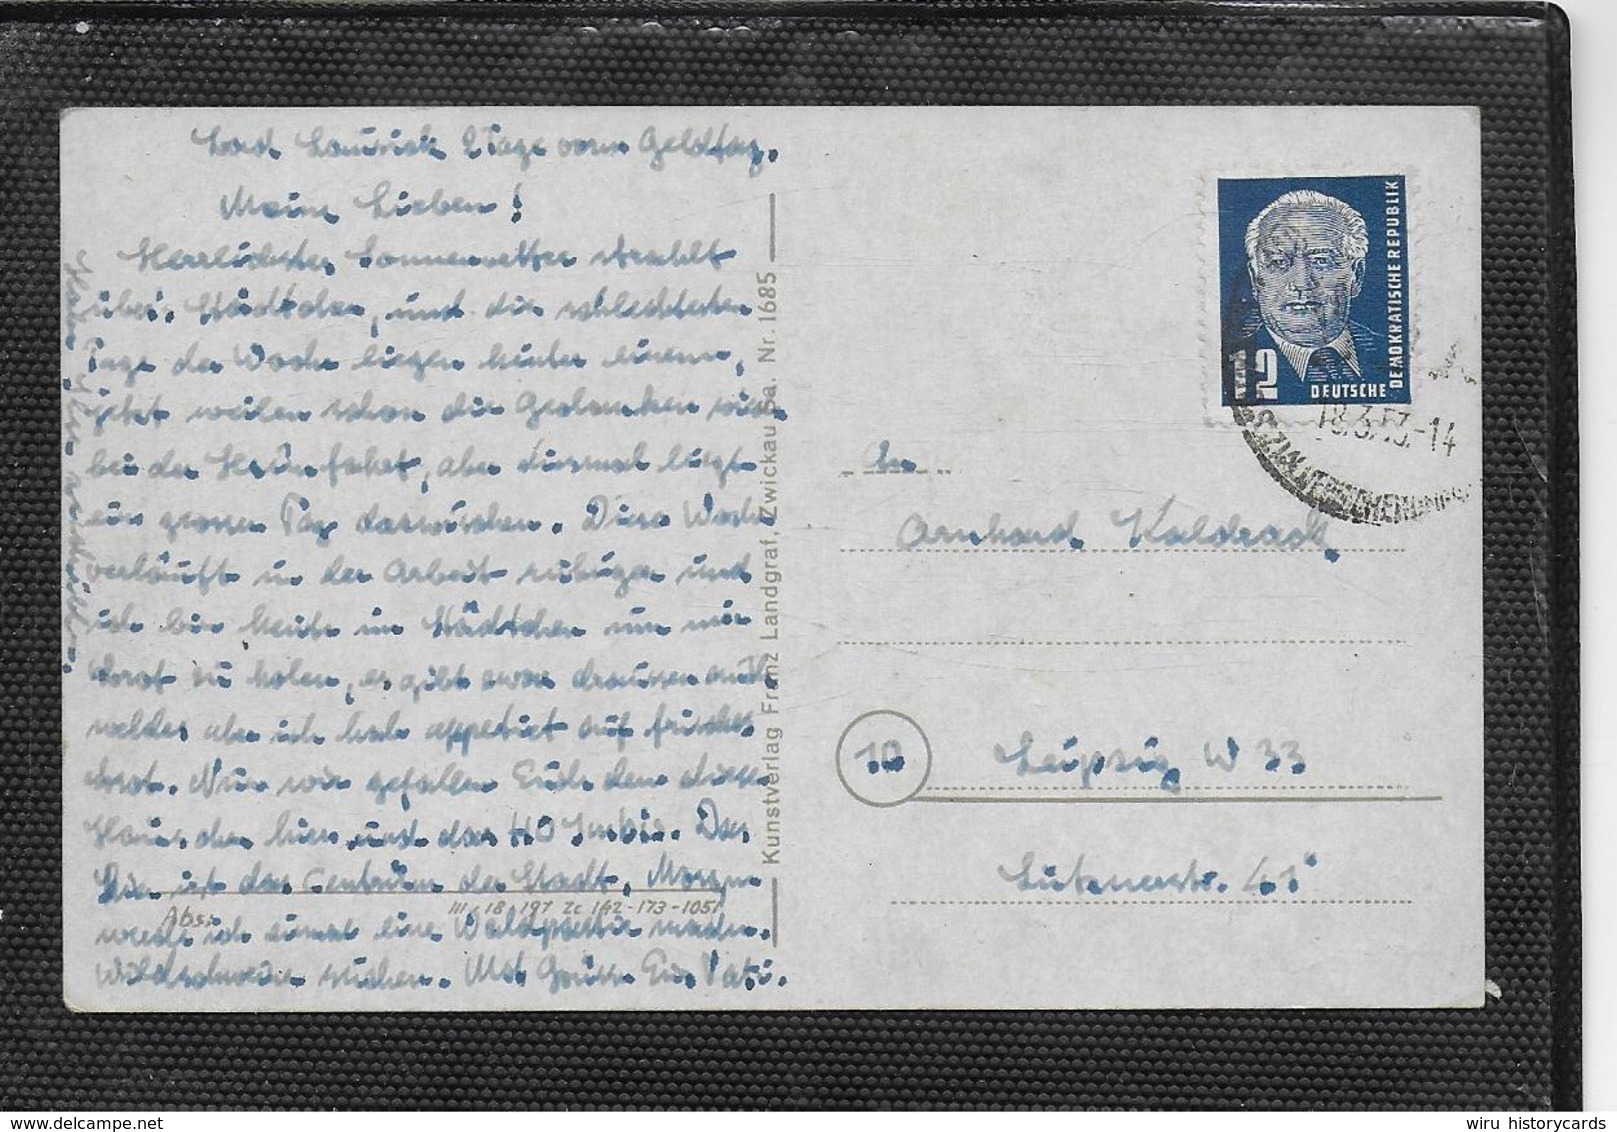 Bad Lausick 2 Tage vorm Geldtag.
Meine Lieben!
Herrlichstes Sonnenwetter strahlt
über Städtchen, und die schlechtesten
Tage der Woche liegen hinter einem,
jetzt weilen schon die Gedanken wieder
bei der Heimfahrt, aber diesmal liegt
ein grosser Tag dazwischen. Diese Woche
verläuft in der Arbeit ruhiger und
ich bin heute im Städtchen um mir
Brot zu holen, es gibt zwar draussen auch
welches aber ich hab appetiet auf frisches
Brot. Nun wie gefallen Euch denn diese
Häuschen hier und das HO Imbis. Das
hier ist das Centrum der Stadt. Morgen
werde ich einmal eine Waldpartie machen.
Wildschweine suchen. Mit Grüsse Euer Vati.
Abs.:
III 18 197 Zc 162-173-1051
Kunstverlag Franz Landgraf, Zwickau Sa. Nr. 1685
12
DEUTSCHE
DEMOKRATISCHE REPUBLIK
18.3.53.-14
An
Arnhard Kaldrack
10
Leipzig W 33
Lütznerstr. 41
wiru historycards